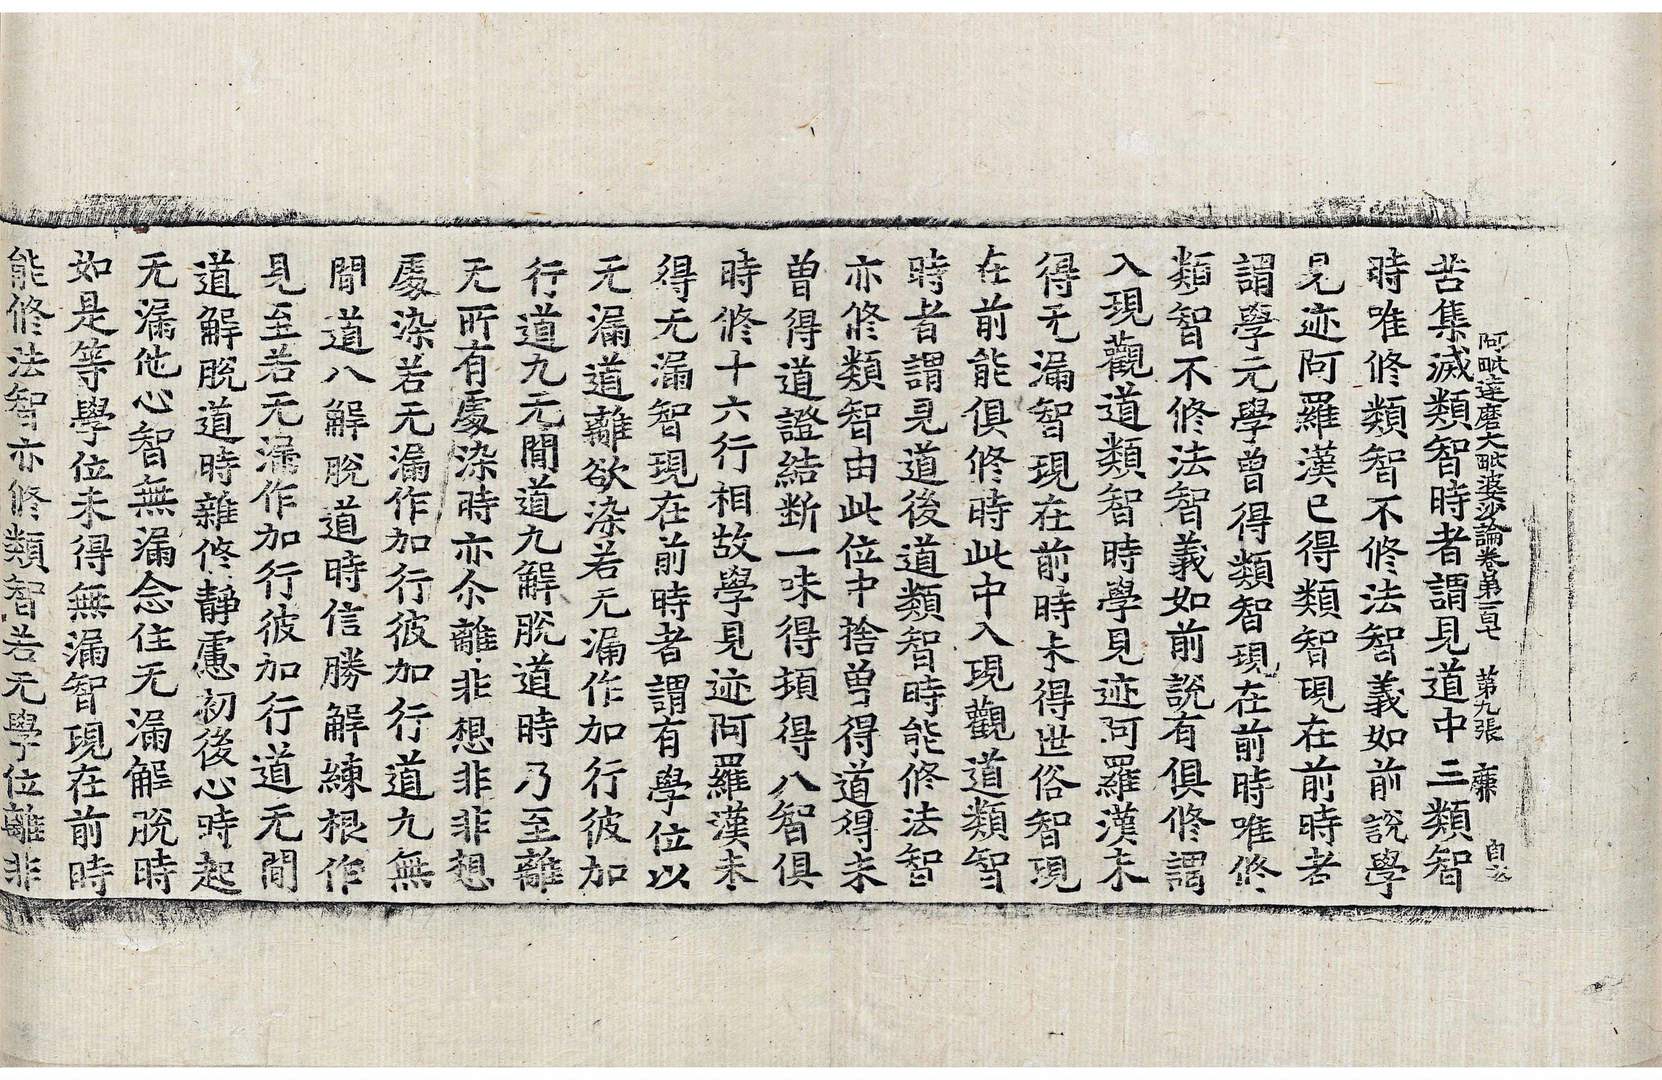 阿毗達磨大毗婆沙論卷第一百七 第九張 廉
苦集滅類智時者謂見道中三類智
時唯修類智不修法智義如前說學
見迹阿羅漢已得類智現在前時者
謂學无學曾得類智現在前時唯修
類智不修法智義如前說有俱修謂
入現觀道類智時學見迹阿羅漢未
得无漏智現在前時未得世俗智現
在前能俱修時此中入現觀道類智
時者謂見道後道類智時能修法智
亦修類智由此位中捨曾得道得未
曾得道證結斷一味得頓得八智俱
時修十六行相故學見迹阿羅漢未
得无漏智現在前時者謂有學位以
无漏道離欲染若无漏作加行彼加
行道九无間道九解脫道時乃至離
无所有處染時亦尒離非想非非想
處染若无漏作加行彼加行道九無
間道八解脫道時信勝解練根作
見至若无漏作加行彼加行道无間
道解脫道時雜修靜慮初後心時起
无漏他心智無漏念住无漏解脫時
如是等學位未得無漏智現在前時
能修法智亦修類智若无學位離非